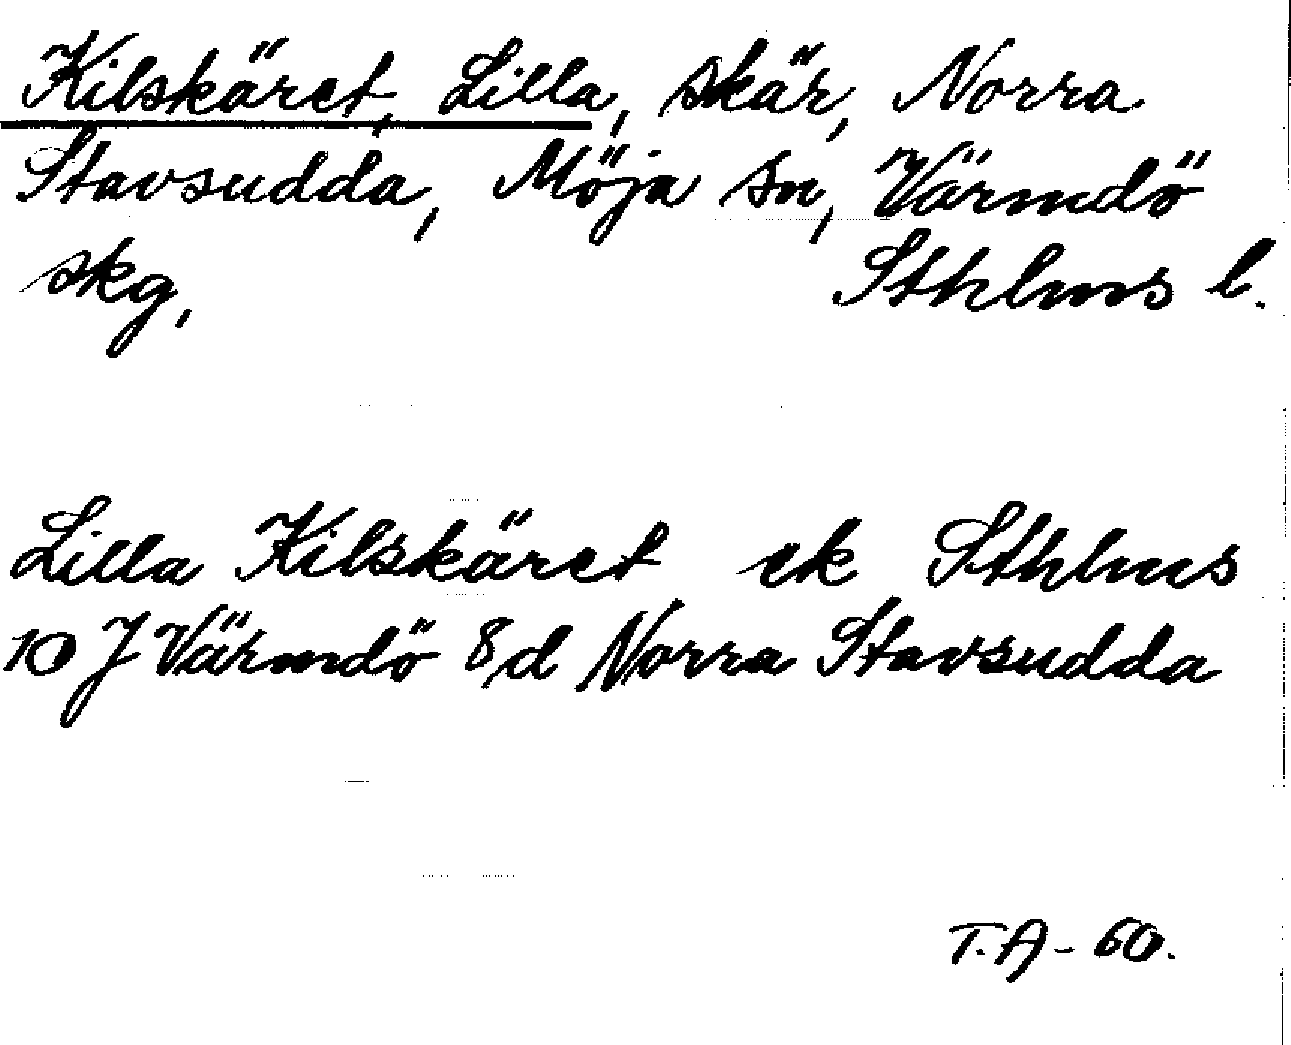 Kilskäret, Lilla, skär, Norra
Stavsudda, Möja sn, Värmdö
skg, Sthlms l.
Lilla Kilskäret ek Sthlms
10 J Värmdö 8d Norra Stavsudda
T.A - 60.